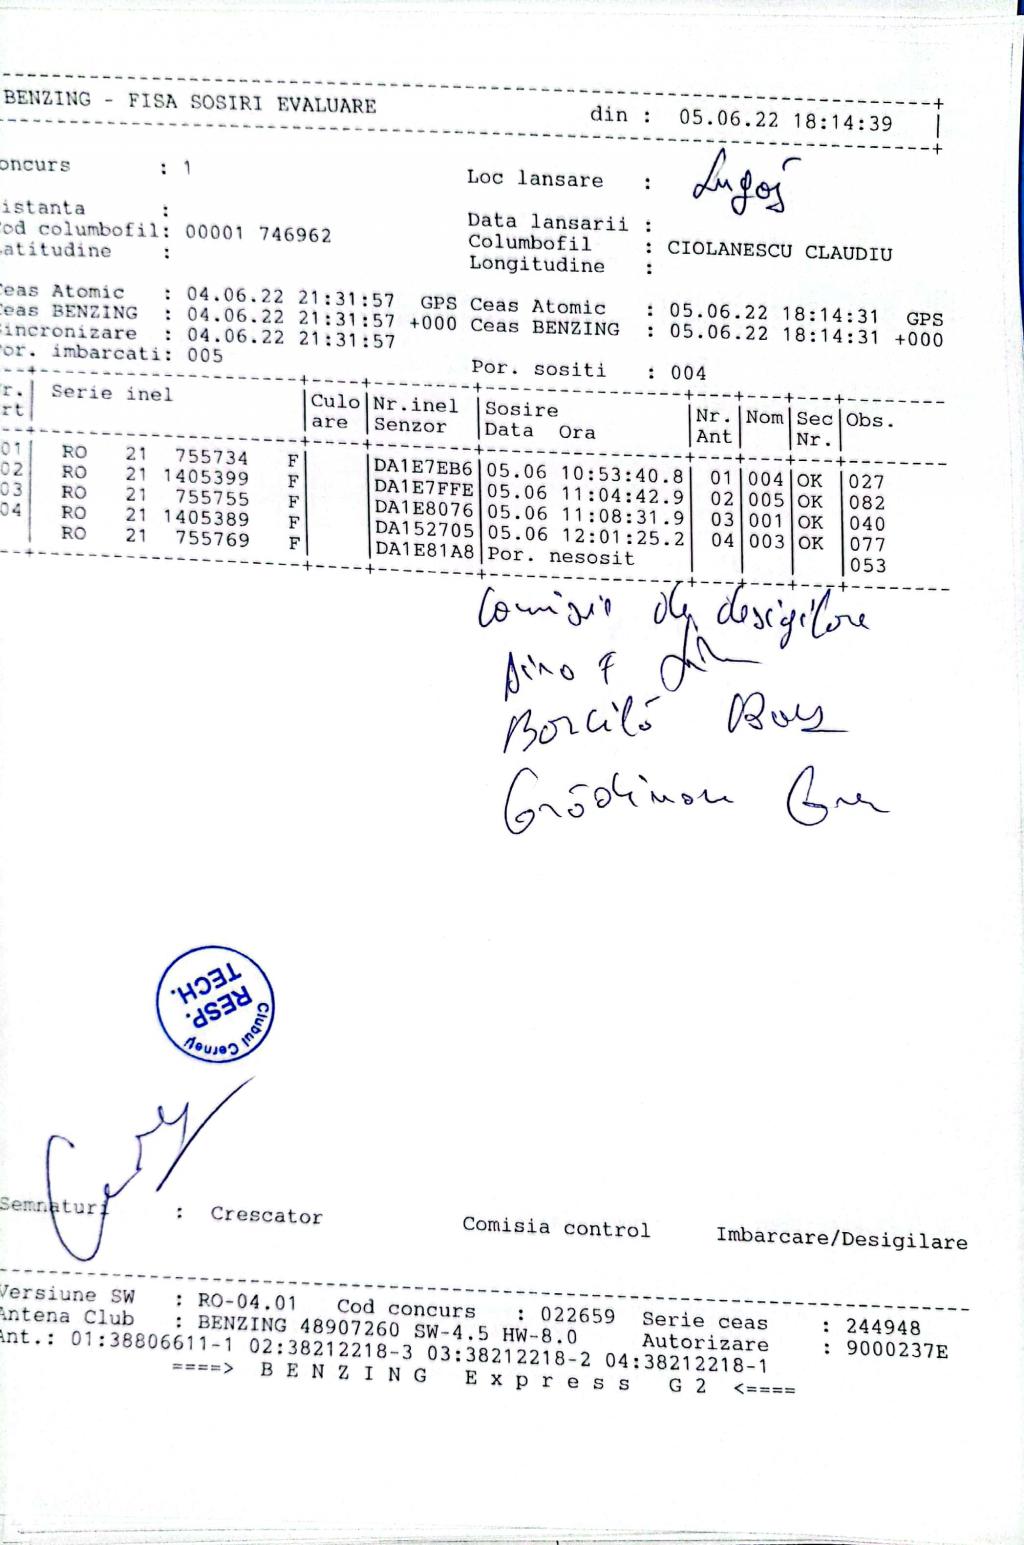 BENZING - FISA SOSIRI EVALUARE din : 05.06.22 18:14:39
oncurs : 1 Loc lansare : Lugoj
istanta : Data lansarii :
od columbofil: 00001 746962 Columbofil : CIOLANESCU CLAUDIU
atitudine : Longitudine :
eas Atomic : 04.06.22 21:31:57 GPS Ceas Atomic : 05.06.22 18:14:31 GPS
eas BENZING : 04.06.22 21:31:57 +000 Ceas BENZING : 05.06.22 18:14:31 +000
incronizare : 04.06.22 21:31:57
or. imbarcati: 005 Por. sositi : 004
r. Serie inel Culo Nr.inel Sosire Nr. Nom Sec Obs.
rt are Senzor Data Ora Ant Nr.
01 RO 21 755734 F DA1E7EB6 05.06 10:53:40.8 01 004 OK 027
02 RO 21 1405399 F DA1E7FFE 05.06 11:04:42.9 02 005 OK 082
03 RO 21 755755 F DA1E8076 05.06 11:08:31.9 03 001 OK 040
04 RO 21 1405389 F DA152705 05.06 12:01:25.2 04 003 OK 077
RO 21 755769 F DA1E81A8 Por. nesosit 053
Comisie de desigilare
Dino F
Borcilă
Grădinaru
Clubul Cerney
RESP.
TECH.
Semnaturi : Crescator Comisia control Imbarcare/Desigilare
Versiune SW : RO-04.01 Cod concurs : 022659 Serie ceas : 244948
Antena Club : BENZING 48907260 SW-4.5 HW-8.0 Autorizare : 9000237E
Ant.: 01:38806611-1 02:38212218-3 03:38212218-2 04:38212218-1
====> B E N Z I N G E x p r e s s G 2 <====